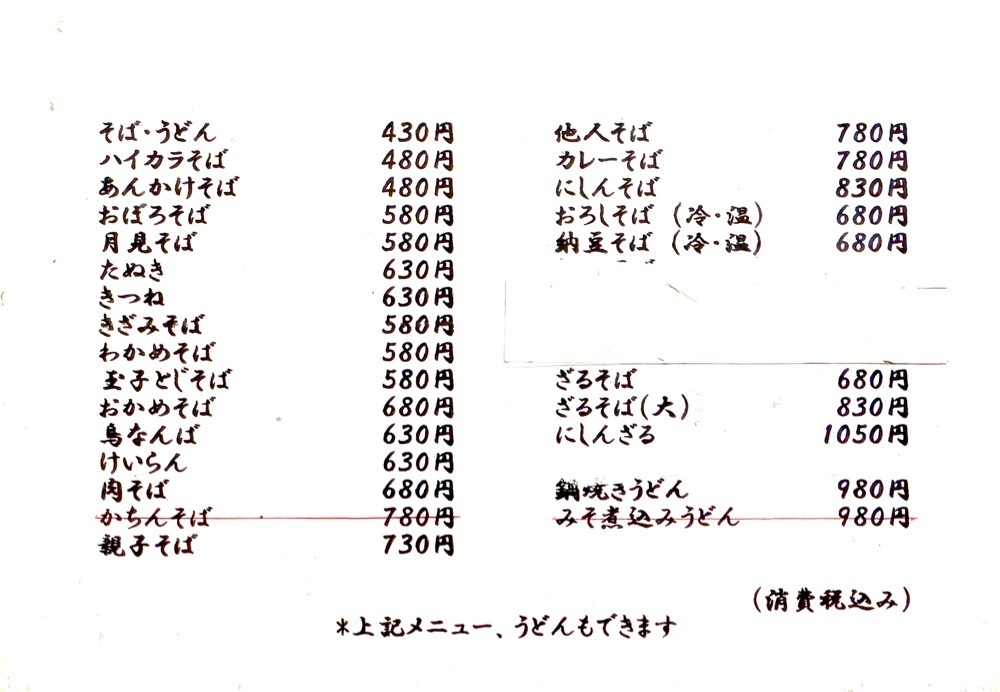 そば・うどん 430円
ハイカラそば 480円
あんかけそば 480円
おぼろそば 580円
月見そば 580円
たぬき 630円
きつね 630円
きざみそば 580円
わかめそば 580円
玉子とじそば 580円
おかめそば 680円
鳥なんば 630円
けいらん 630円
肉そば 680円
かちんそば 780円
親子そば 730円
他人そば 780円
カレーそば 780円
にしんそば 830円
おろしそば (冷・温) 680円
納豆そば (冷・温) 680円
ざるそば 680円
ざるそば(大) 830円
にしんざる 1050円
鍋焼きうどん 980円
みそ煮込みうどん 980円
(消費税込み)
*上記メニュー、うどんもできます